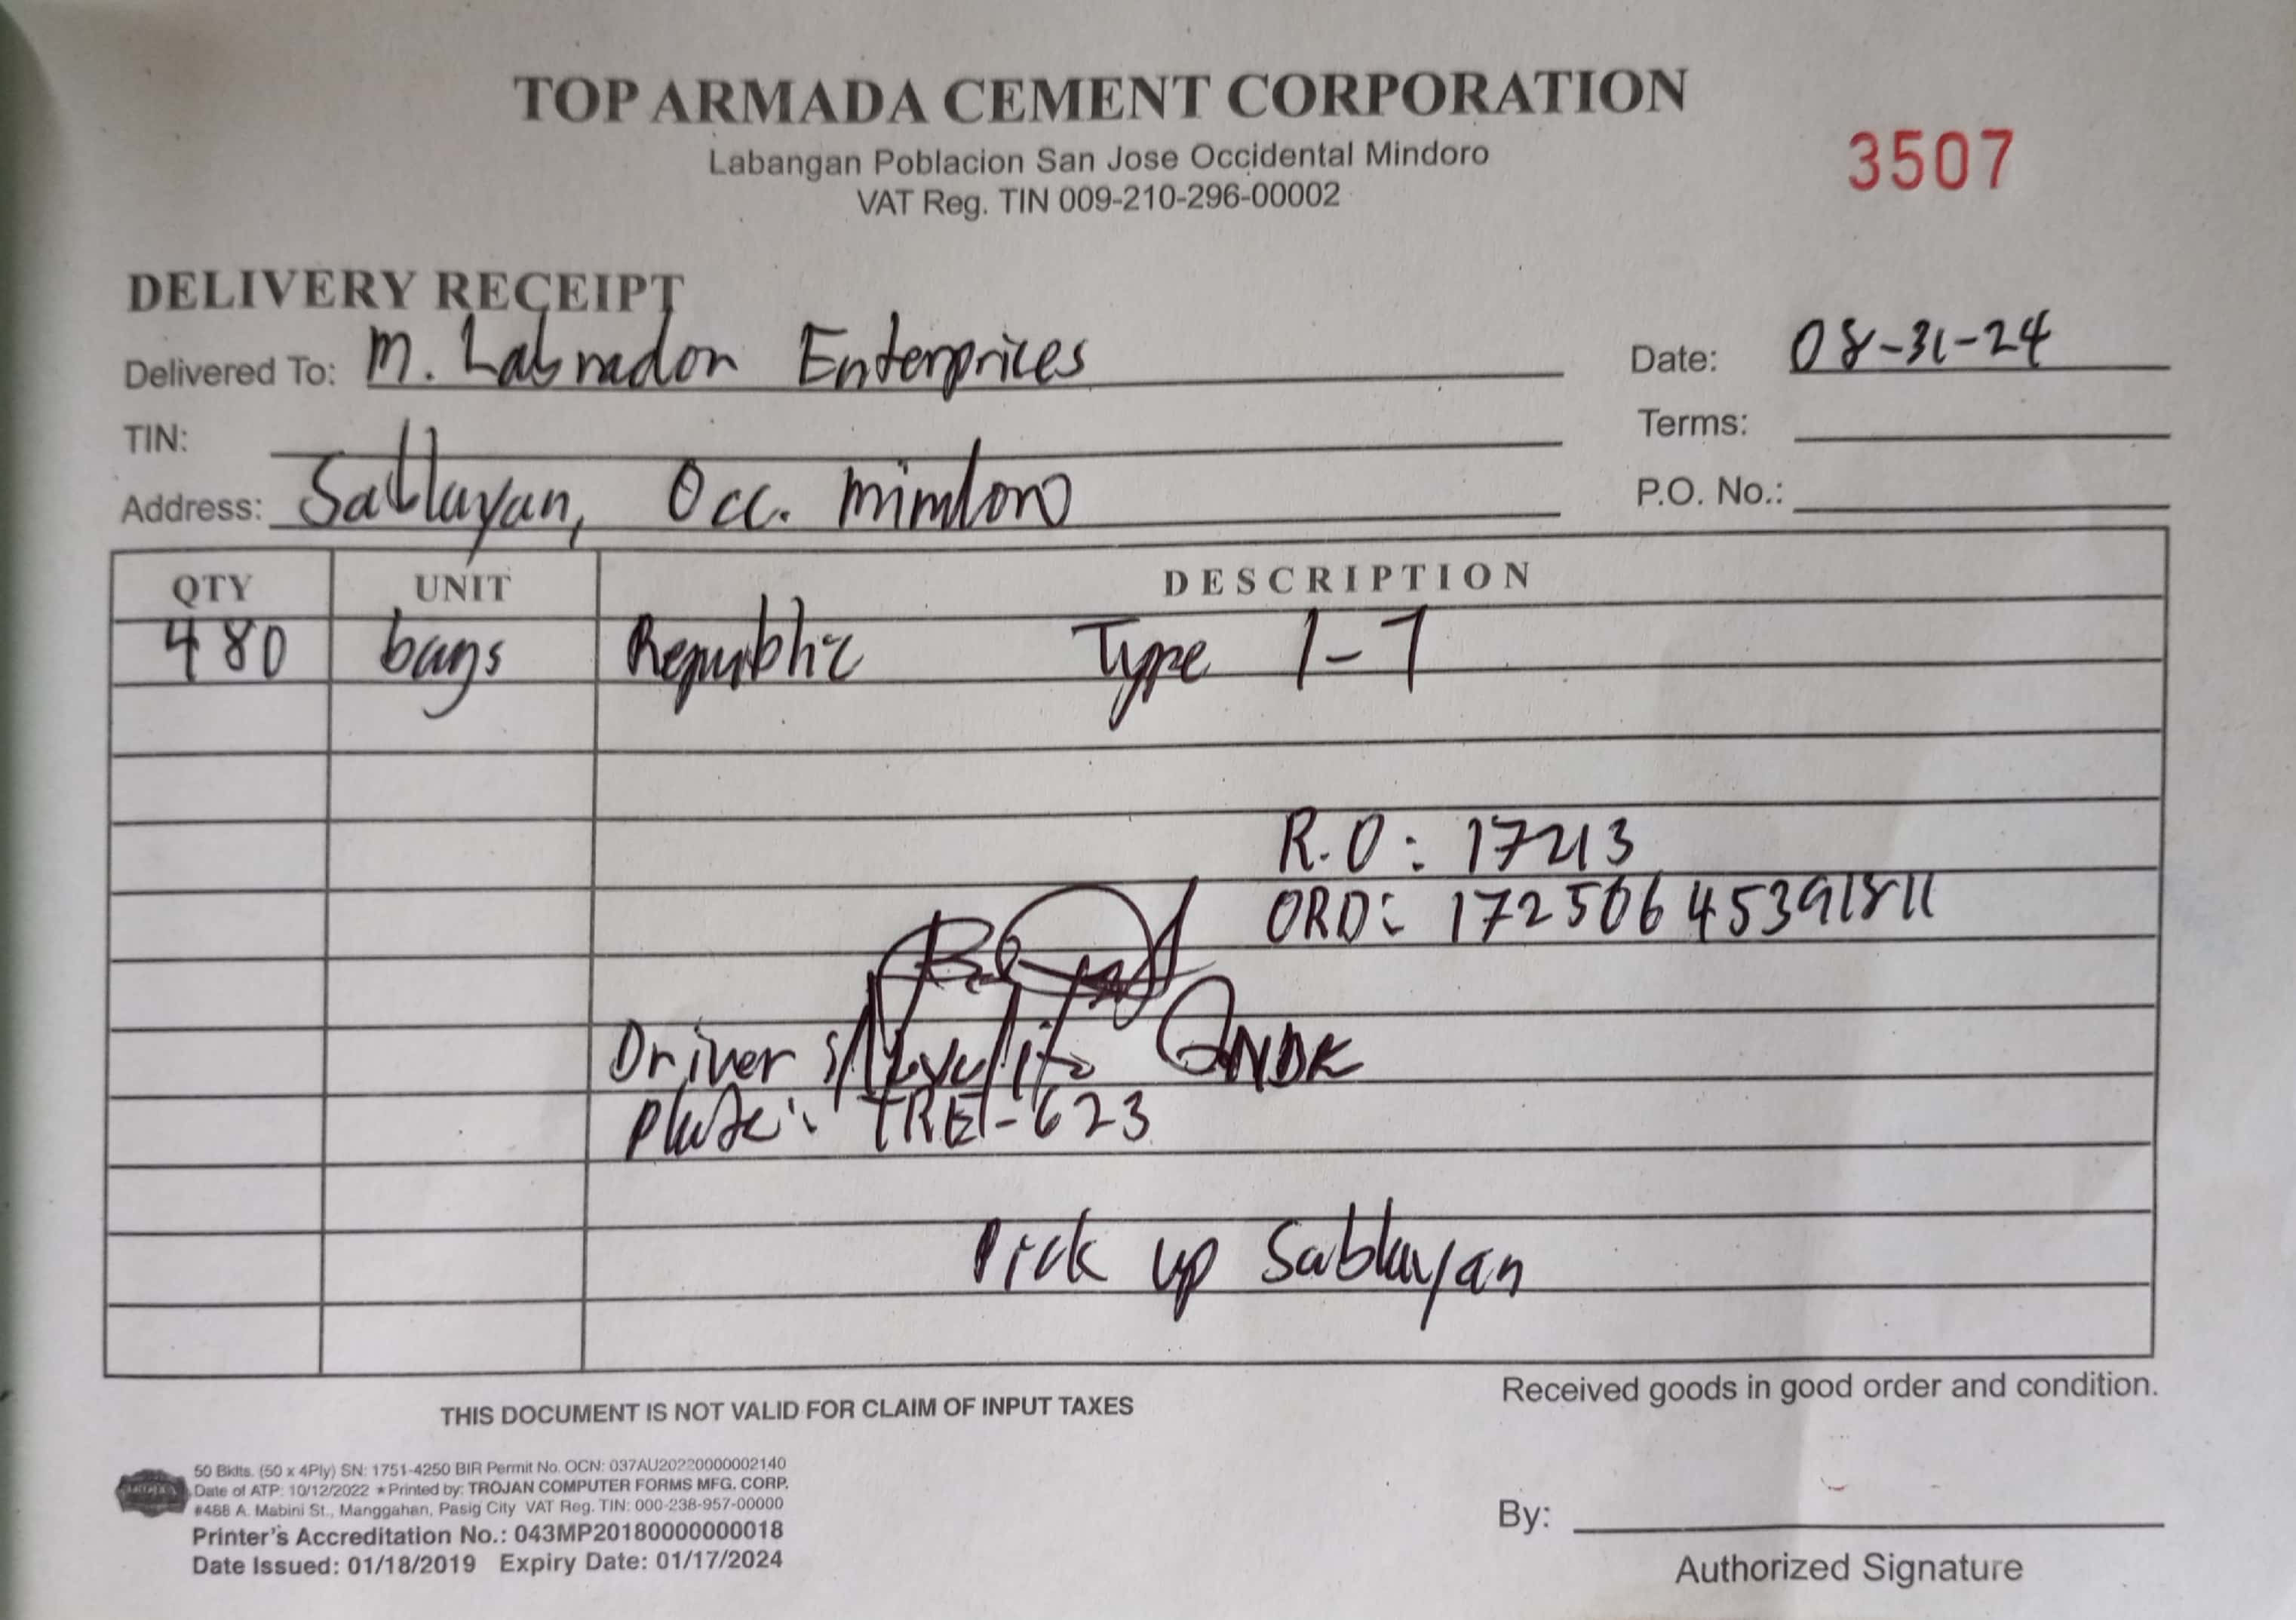 TOP ARMADA CEMENT CORPORATION
Labangan Poblacion San Jose Occidental Mindoro
VAT Reg. TIN 009-210-296-00002
3507
DELIVERY RECEIPT
Delivered To: M. Labrador Enterprices
Date: 08-31-24
TIN:
Terms:
Address: Sablayan, Occ. Mindoro
P.O. No.:
QTY UNIT DESCRIPTION
480 bags Republic Type 1-T
R.O: 17213
ORD: 17250645391811
Driver
Plate: TRE-623
Pick up Sablayan
THIS DOCUMENT IS NOT VALID FOR CLAIM OF INPUT TAXES
Received goods in good order and condition.
50 Bklts. (50 x 4Ply) SN: 1751-4250 BIR Permit No. OCN: 037AU20220000002140
Date of ATP: 10/12/2022 ★ Printed by: TROJAN COMPUTER FORMS MFG. CORP.
#488 A. Mabini St., Manggahan, Pasig City VAT Reg. TIN: 000-238-957-00000
Printer's Accreditation No.: 043MP20180000000018
Date Issued: 01/18/2019 Expiry Date: 01/17/2024
By:
Authorized Signature